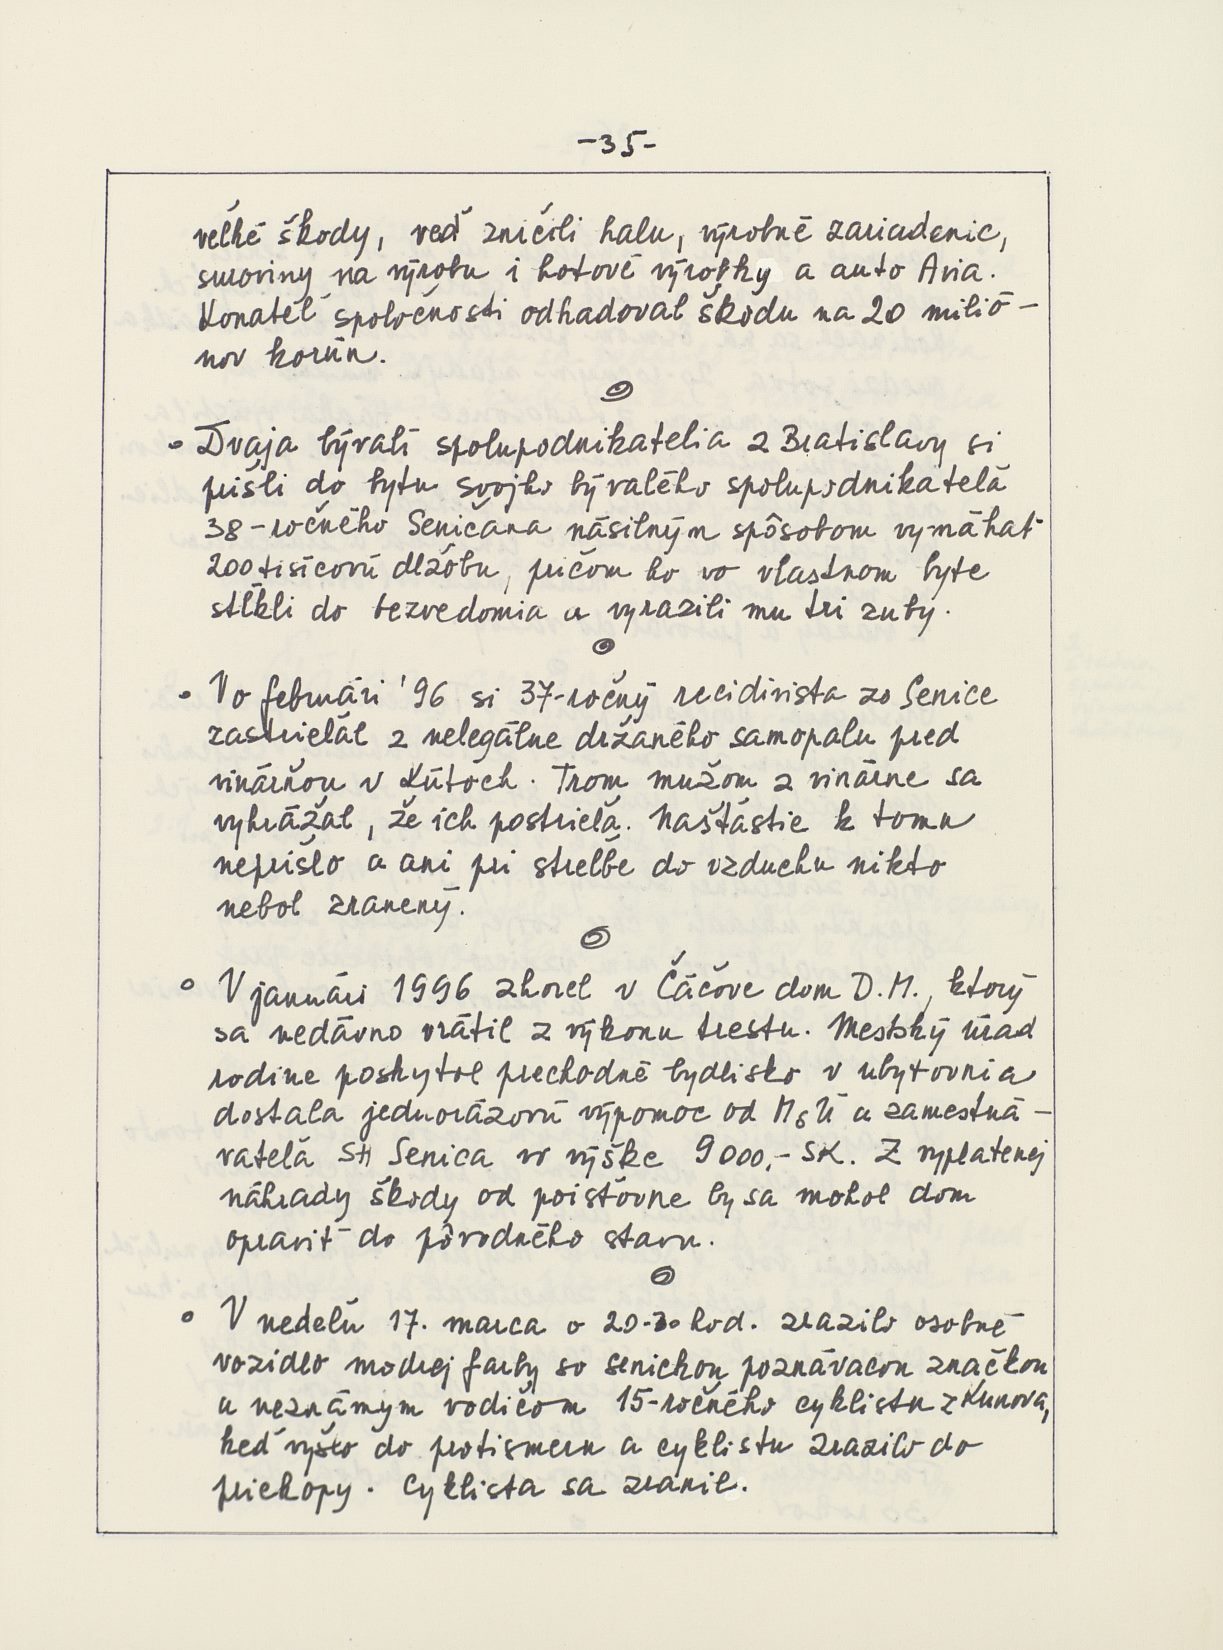 -35-
veľké škody, veď zničili halu, výrobné zariadenie,
suroviny na výrobu i hotové výrobky a auto Avia.
Konateľ spoločnosti odhadoval škodu na 20 milió-
nov korún.
Dvaja bývalí spolupodnikatelia z Bratislavy si
prišli do bytu svojho bývalého spolupodnikateľa
38-ročného Seničana násilným spôsobom vymáhať
200tisícovú dlžobu, pričom ho vo vlastnom byte
stĺkli do bezvedomia a vyrazili mu tri zuby.
Vo februári '96 si 37-ročný recidivista zo Senice
zastrieľal z nelegálne držaného samopalu pred
vinárňou v Kútoch. Trom mužom z vinárne sa
vyhrážal, že ich postrieľa. Našťastie k tomu
neprišlo a ani pri streľbe do vzduchu nikto
nebol zranený.
V januári 1996 zhorel v Čáčove dom D.M., ktorý
sa nedávno vrátil z výkonu trestu. Mestský úrad
rodine poskytol prechodné bydlisko v ubytovni a
dostala jednorázovú výpomoc od MsÚ a zamestná-
vateľa SH Senica vo výške 9000,- SK. Z vyplatenej
náhrady škody od poisťovne by sa mohol dom
opraviť do pôvodného stavu.
V nedeľu 17. marca o 20.30 hod. zrazilo osobné
vozidlo modrej farby so senickou poznávacou značkou
a neznámym vodičom 15-ročného cyklistu z Kunova,
keď vyšlo do protismeru a cyklistu zrazilo do
priekopy. Cyklista sa zranil.